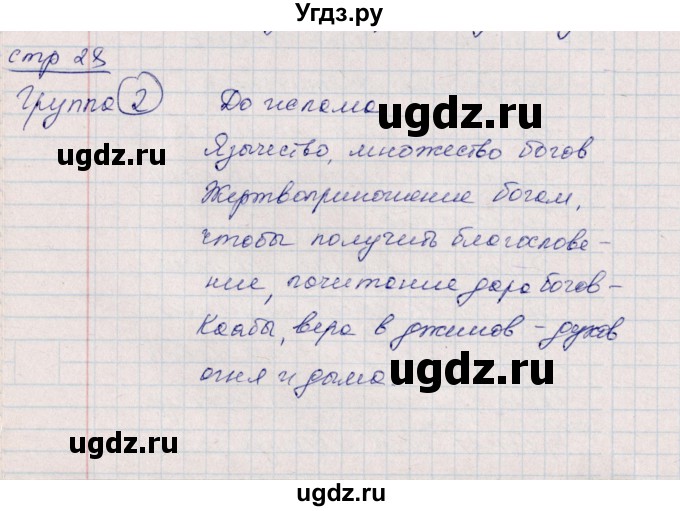 Угдз.ру
стр 28
Группа 2 До ислама
ugdz.ru
Язычество, множество богов
ugdz.ru
Жертвоприношение богам,
чтобы получить благослове-
ние, почитание дара богов -
Каабы, вера в джинов - духов
огня и дыма
ugdz.ru
ugdz.ru
ugdz.ru